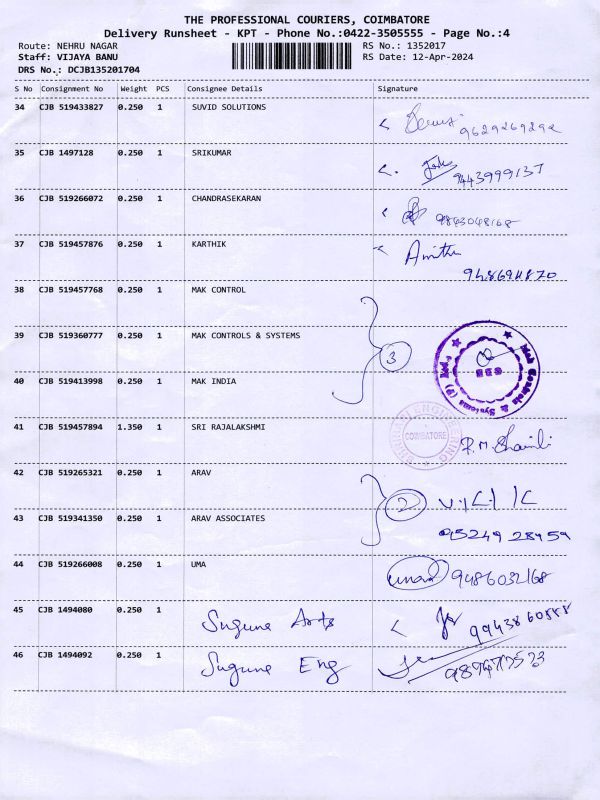 THE PROFESSIONAL COURIERS, COIMBATORE
Delivery Runsheet - KPT - Phone No.:0422-3505555 - Page No.:4
Route: NEHRU NAGAR RS No.: 1352017
Staff: VIJAYA BANU RS Date: 12-Apr-2024
DRS No.: DCJB135201704
S No Consignment No Weight PCS Consignee Details Signature
34 CJB 519433827 0.250 1 SUVID SOLUTIONS
9629269292
35 CJB 1497128 0.250 1 SRIKUMAR
9443999137
36 CJB 519266072 0.250 1 CHANDRASEKARAN
9843048168
37 CJB 519457876 0.250 1 KARTHIK
38 CJB 519457768 0.250 1 MAK CONTROL
39 CJB 519360777 0.250 1 MAK CONTROLS & SYSTEMS
3
Mak Controls & Systems (P) Ltd
40 CJB 519413998 0.250 1 MAK INDIA
41 CJB 519457894 1.350 1 SRI RAJALAKSHMI
ENGINEERING
COIMBATORE
42 CJB 519265321 0.250 1 ARAV
2
43 CJB 519341350 0.250 1 ARAV ASSOCIATES
95249 28459
44 CJB 519266008 0.250 1 UMA
9486032168
45 CJB 1494080 0.250 1 Suguna Arts
46 CJB 1494092 0.250 1 Suguna Eng